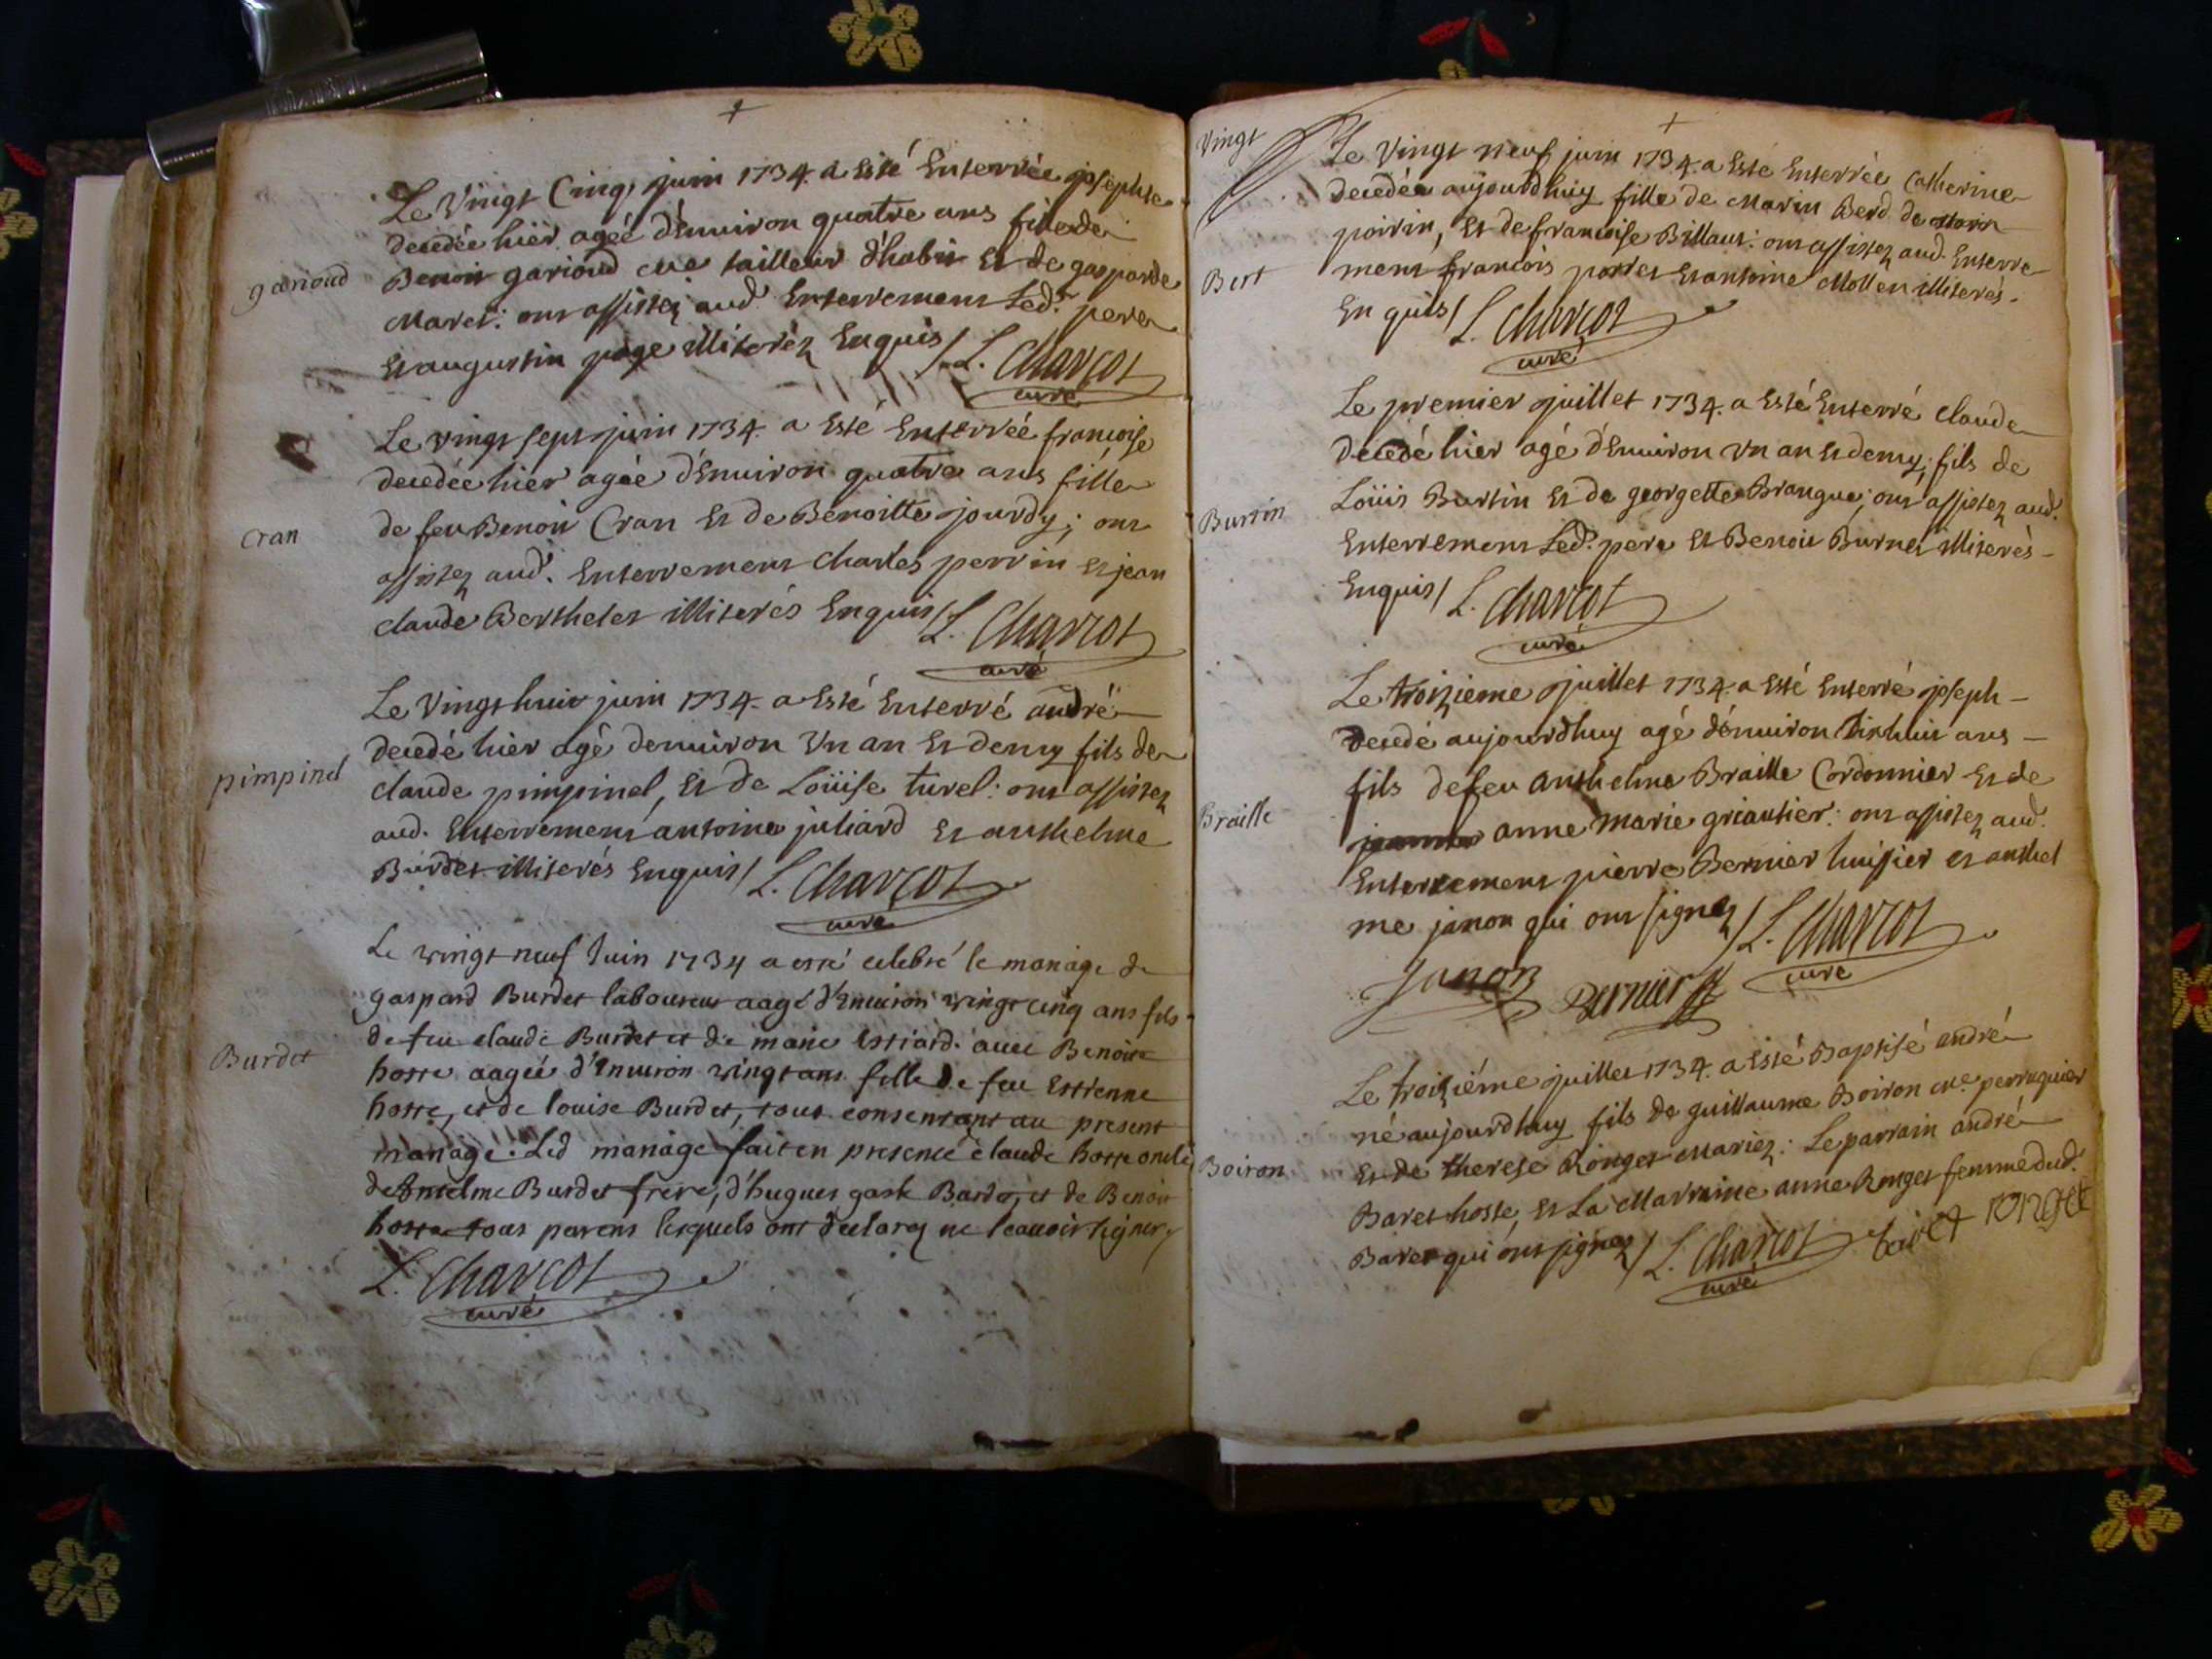 Le Vingt Cinq juin 1734. a Esté Enterrée josephte
decedée hier agée d'Enuiron quatre ans fille de
garioud
Benoit garioud me tailleur d'habit Et de gasparde
Maret: ont assistez aud. Enterrement Led. pere
Et augustin page illiteréz Enquis / L. Charcot
curé
Le vingt sept juin 1734. a Esté Enterrée francoise
decedée hier agée d'Enuiron quatre ans fille
Cran
de feu Benoit Cran Et de Benoitte jourdy; ont
assistez aud. Enterrement Charles perrin Et jean
claude Berthelet illiterés Enquis / L. Charcot
curé
Le Vingt huit juin 1734. a Esté Enterré andré
decedé hier agé denuiron Vn an Et demy fils de
pimpinel
claude pimpinel, Et de Loüise turel: ont assistez
aud. Enterrement antoine juliard Et anthelme
Burdet illiterés Enquis / L. Charcot
curé
Le vingt neuf Juin 1734 a esté celebré le mariage de
gaspard Burdet laboureur aagé d'Enuiron vingt cinq ans fils
Burdet
de feu claude Burdet et de marie estiard. auec Benoite
hoste aageé d'Enuiron vingt ans fille de feu Estienne
hoste, et de louise Burdet, tous consentant au present
mariage. Led mariage fait en presence claude hoste oncle
de Anselme Burdet frere, d'hugues Bardo, et de Benoit
hoste tous parens lesquels ont declaréz ne scauoir signer
L. Charcot
curé
Vingt
Le Vingt neuf juin 1734. a Esté Enterrée Catherine
decedée aujourdhuy fille de Marin Berd de
poirin, Et de francoise Billaut: ont assistez aud. Enterre-
Bert
ment francois portet Et antoine Mollen illiterés.
Enquis / L. Charcot
curé
Le premier juillet 1734. a Esté Enterré claude
decedé hier agé d'Enuiron Vn an Et demy, fils de
Burtin
Loüis Burtin Et de georgette Brangue; ont assistez aud.
Enterrement Led. pere Et Benoit Burnet illiterés
Enquis / L. Charcot
curé
Le troizieme juillet 1734. a Esté Enterré joseph
decedé aujourdhuy agé d'enuiron dixhuit ans
fils de feu anthelme Braille Cordonnier Et de
Braille
anne marie griautier: ont assistez aud.
Enterrement pierre Bernier huissier et anthel
me janon qui ont signez / L. Charcot
Janon Bernier curé
Le troiziéme juillet 1734. a Esté Baptisé andré
né aujourdhuy fils de guillaume Boiron me. perruquier
Boiron
Et de therese Ronget Mariez: Le parrain andré
Baret hoste, Et La Marraine anne Ronget femme dud.
Baret qui ont signez / L. Charcot baret ronget
curé